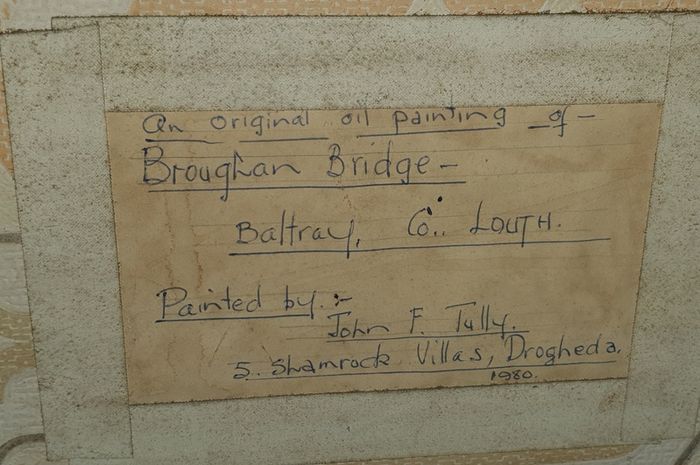 An original oil painting of -
Broughan Bridge -
Baltray, Co.. LOUTH.
Painted by :-
John F. Tully.
5. Shamrock Villas, Drogheda.
1980.